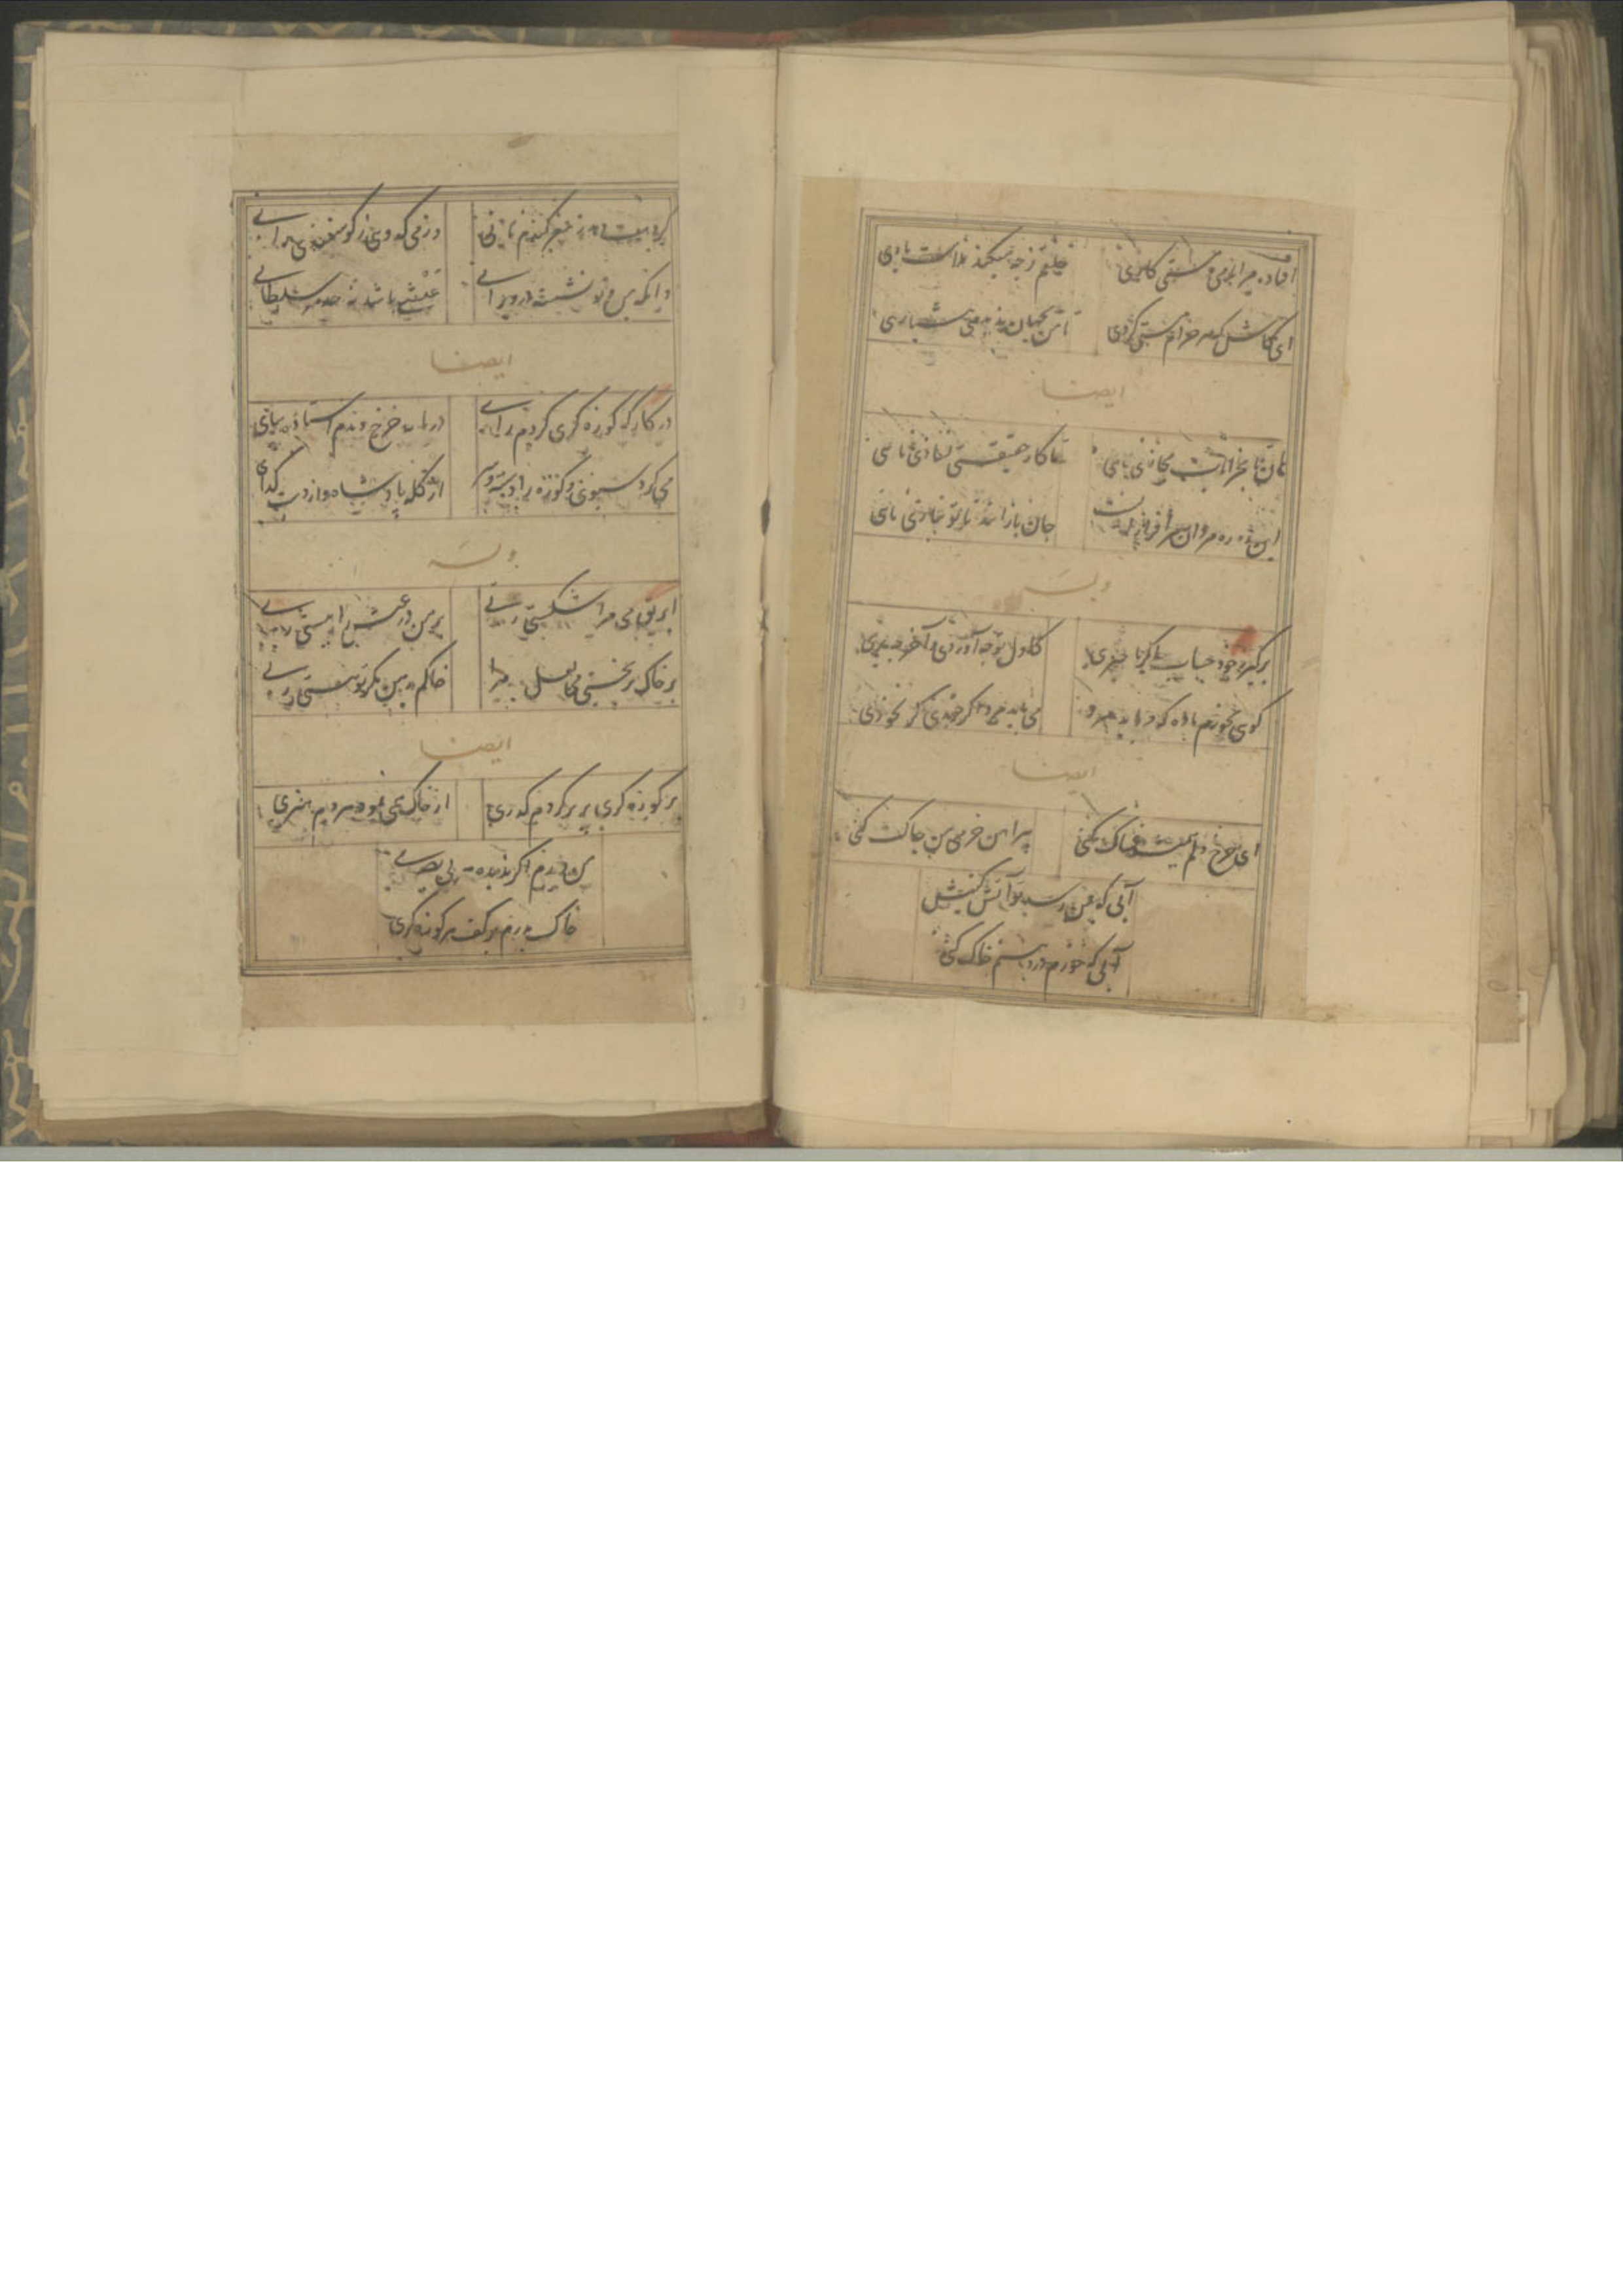 افتاد مرا بامی و مستی کاری
خلقم ز چه میکند ملامت باری
ای کاش که هر حرام مستی کردی
تا من بجهان ندیدمی هشیاری
ایضا
هان تا بخرابات مجازی نائی
تا کار حقیقتی نسازی نائی
این ره ره مردان سر افراز
جان بازانند تا تو نبازی نائی
وله
برگیر ز خود حساب اگر باخبری
کاول تو چه آوردی و آخر چه بری
گوئی نخورم باده که می باید مرد
می باید مرد اگر خوری گر نخوری
ایضا
ای چرخ دلم همیشه غمناک کنی
پیراهن خرمی من چاک کنی
آبی که بمن رسد تو آتش کنیش
آبی که خورم در دهنم خاک کنی
گر دست دهد ز مغز گندم نانی
وز می کدوی ز گوسفندی رانی
وانگه من و تو نشسته در ویرانی
عیشی باشد نه حد هر سلطانی
ایضا
در کارگه کوزه گری کردم رای
در پایه چرخ دیدم استاده بپای
میکرد سبوی و کوزه را دسته و سر
از کله پادشاه و از دست گدای
وله
ابریق می مرا شکستی ربی
بر من در عیش را ببستی ربی
بر خاک بریختی می لعل مرا
خاکم بدهن مگر تو مستی ربی
ایضا
بر کوزه گری پریر کردم گذری
از خاک همی نمود هر دم هنری
من دیدم اگر ندید هر بی بصری
خاک پدرم در کف هر کوزه گری